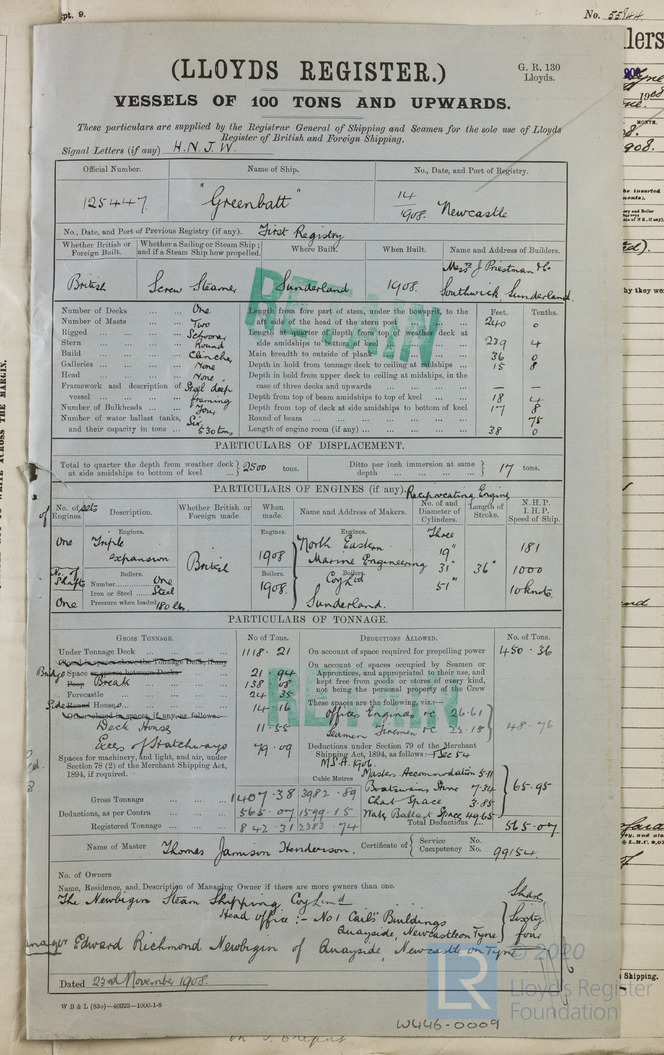 pt. 9.
No. 55844
(LLOYDS REGISTER.)
G. R. 130
Lloyds.
VESSELS OF 100 TONS AND UPWARDS.
These particulars are supplied by the Registrar General of Shipping and Seamen for the sole use of Lloyds
Register of British and Foreign Shipping.
Signal Letters (if any) H. N. J. W.
Official Number. Name of Ship. No., Date, and Port of Registry.
125447 "Greenbatt" 14/1908. Newcastle
No., Date, and Port of Previous Registry (if any). First Registry
Whether British or Foreign Built. Whether a Sailing or Steam Ship; and if a Steam Ship how propelled. Where Built. When Built. Name and Address of Builders.
British Screw Steamer Sunderland 1908. Messrs J Priestman & Co Southwick Sunderland
RETAIN
Feet. Tenths.
Number of Decks One Length from fore part of stem, under the bowsprit, to the aft side of the head of the stern post 240 0
Number of Masts Two
Rigged Schooner Length at quarter of depth from top of weather deck at side amidships to bottom of keel 239 4
Stern Round
Build Clincher Main breadth to outside of plank 36 0
Galleries None Depth in hold from tonnage deck to ceiling at midships 15 8
Head None Depth in hold from upper deck to ceiling at midships, in the case of three decks and upwards — —
Framework and description of vessel Steel deep framing
Depth from top of beam amidships to top of keel 18 4
Number of Bulkheads Four Depth from top of deck at side amidships to bottom of keel 17 8
Number of water ballast tanks, and their capacity in tons Six 530 tons Round of beam 75
Length of engine room (if any) 38 0
PARTICULARS OF DISPLACEMENT.
Total to quarter the depth from weather deck at side amidships to bottom of keel 2500 tons. Ditto per inch immersion at same depth 17 tons.
PARTICULARS OF ENGINES (if any). Reciprocating Engine
No. of sets of Engines. Description. Whether British or Foreign made. When made. Name and Address of Makers. No. of and Diameter of Cylinders. Length of Stroke. N. H. P. I. H. P. Speed of Ship.
Engines. Engines. Engines. Three
One Triple expansion British 1908 North Eastern Marine Engineering Coy Ltd Sunderland. 19" 31" 51" 36" 181 1000 10 knots.
No. of Shafts One
Boilers. Boilers. Boilers.
Number One 1908.
Iron or Steel Steel
Pressure when loaded 180 lbs.
PARTICULARS OF TONNAGE.
GROSS TONNAGE. No of Tons. DEDUCTIONS ALLOWED. No. of Tons.
Under Tonnage Deck 1118.21 On account of space required for propelling power 450.36
Closed in spaces above the Tonnage Deck, if any
Bridge Space or spaces between Decks 21.94 On account of spaces occupied by Seamen or Apprentices, and appropriated to their use, and kept free from goods or stores of every kind, not being the personal property of the Crew
Poop Break 138.08
Forecastle 24.35
Side Round Houses 14.16 These spaces are the following, viz.:—
Other closed in spaces, if any, as follows: Officers Engineers &c 26.61
Deck House 11.55 Seamen Firemen &c 22.15 48.76
Excess of Hatchways 79.09
RETAIN
Spaces for machinery, and light, and air, under Section 78 (2) of the Merchant Shipping Act, 1894, if required.
Deductions under Section 79 of the Merchant Shipping Act, 1894, as follows:— & Sec 54 M.S.A. 1906.
Cubic Metres Masters Accommodation 5.11
Boatswains Store 7.34
Chart Space 3.85
Water Ballast Space 49.65 65.95
Gross Tonnage 1407.38 3982.89
Deductions, as per Contra 565.07 1599.15 Total Deductions 565.07
Registered Tonnage 842.31 2383.74
Name of Master Thomas Jamison Henderson. Certificate of Service No. Competency No. 99154.
No. of Owners
Name, Residence, and Description of Managing Owner if there are more owners than one. Shares
The Newbigin Steam Shipping Coy Limd
Head office:- No 1 Cail's Buildings
Quayside, Newcastle on Tyne Sixty four
Manager Edward Richmond Newbigin of Quayside, Newcastle on Tyne
Dated 23rd November 1908.
W B & L (83o)—46923—1000-1-8
W446-0009
LR
© 2020
Lloyd's Register
Foundation